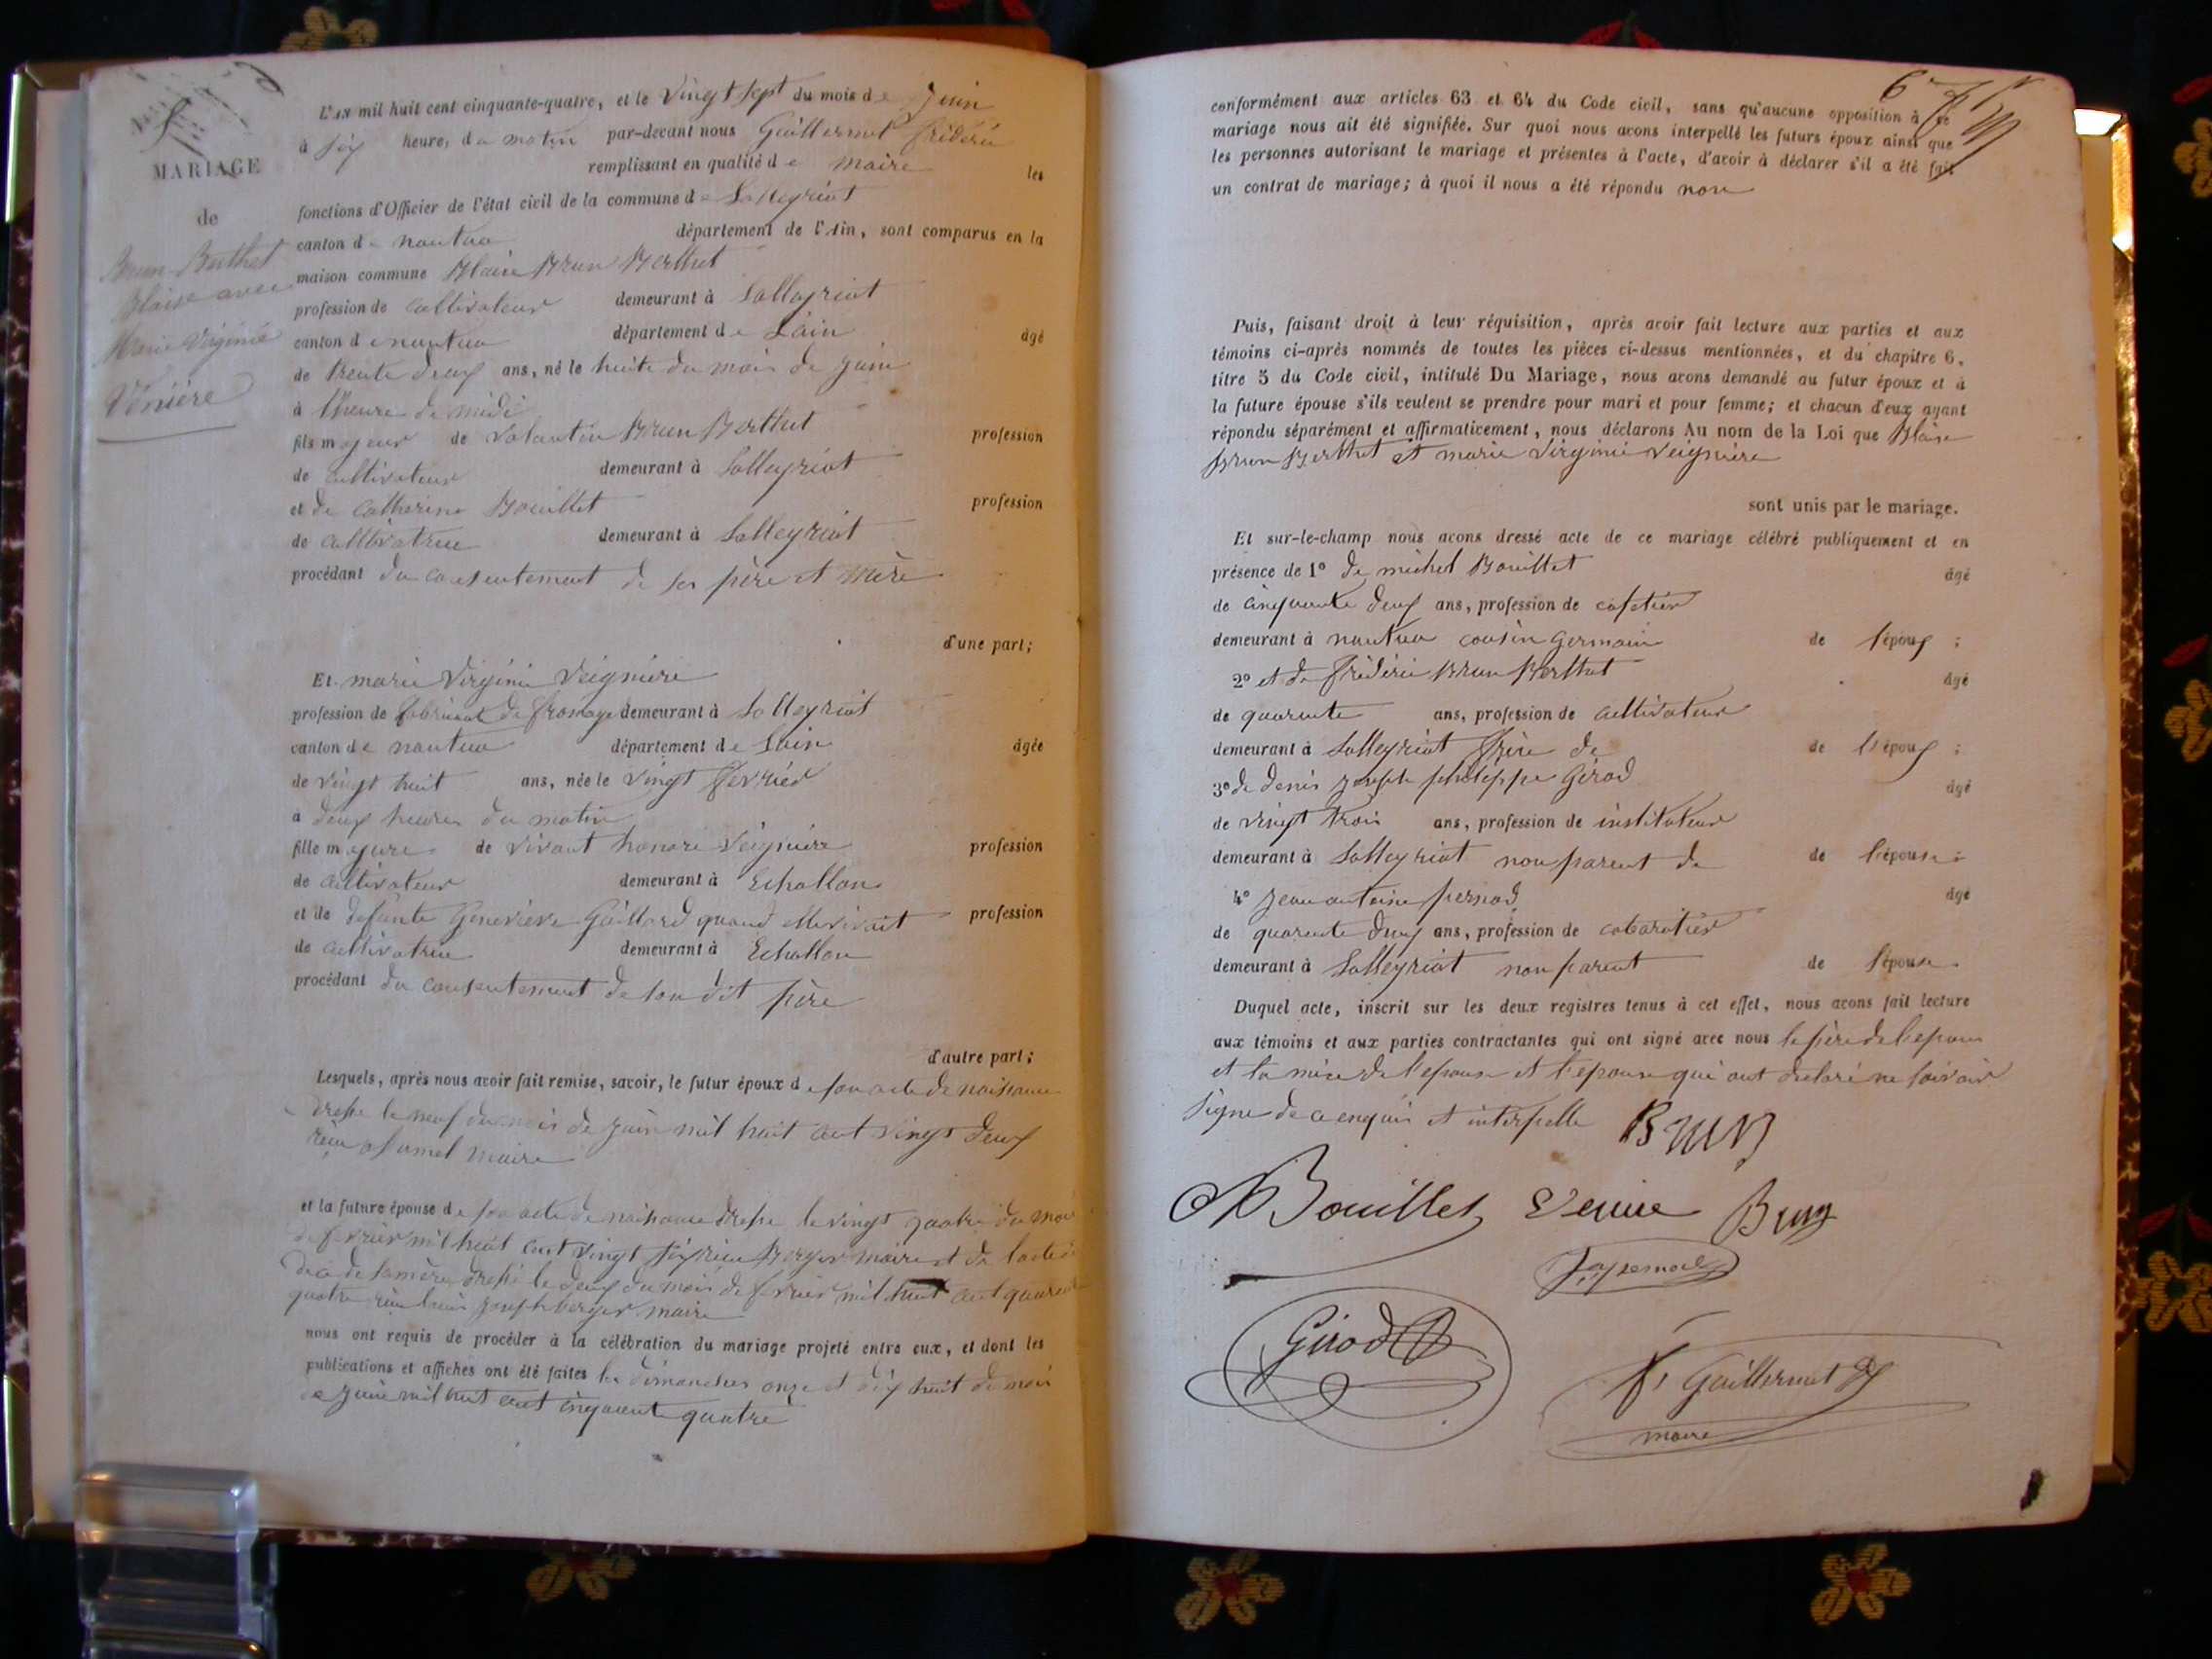 MARIAGE
de
Brun Berthet
Blaise avec
Marie Virginie
Vénière
L'An mil huit cent cinquante-quatre, et le vingt sept du mois de juin
à six heure, du matin par-devant nous Guillermet frédéric
remplissant en qualité de maire les
fonctions d'Officier de l'état civil de la commune de Lalleyriat
canton de nantua département de l'Ain, sont comparus en la
maison commune Blaise Brun Berthet
profession de cultivateur demeurant à Lalleyriat
canton de nantua département de L'ain âgé
de trente deux ans, né le huite du mois de juin
à l'heure de midi
fils majeur de valantin Brun Berthet profession
de cultivateur demeurant à Lalleyriat
et de catherine Bouillet profession
de cultivatrice demeurant à Lalleyriat
procédant du consentement de ses père et mère
d'une part;
Et marie virginie veignière
profession de fabricant de fromage demeurant à Lalleyriat
canton de nantua département de Lain âgée
de vingt huit ans, née le vingt fevrier
à deux heures du matin
fille majure de vivant honoré veignière profession
de cultivateur demeurant à Echallon
et de defunte Genevieve Gaillard quand elle vivait profession
de cultivatrice demeurant à Echallon
procédant du consentement de son dit père
d'autre part;
Lesquels, après nous avoir fait remise, savoir, le futur époux de son acte de naissance
dressé le neuf du mois de juin mil huit cent vingt deux
reçu maire
et la future épouse de son acte de naissance dressé le vingt quatre du mois
de fevrier mil huit cent vingt six reçu Berger maire et de l'acte de
de sa mère dressé le deux du mois de fevrier mil huit cent quarante
quatre reçu joseph berger maire
nous ont requis de procéder à la célébration du mariage projeté entre eux, et dont les
publications et affiches ont été faites les dimanches onze et dix huit du mois
de juin mil huit cent cinquante quatre
6
conformément aux articles 63 et 64 du Code civil, sans qu'aucune opposition à ce
mariage nous ait été signifiée. Sur quoi nous avons interpellé les futurs époux ainsi que
les personnes autorisant le mariage et présentes à l'acte, d'avoir à déclarer s'il a été fait
un contrat de mariage; à quoi il nous a été répondu non
Puis, faisant droit à leur réquisition, après avoir fait lecture aux parties et aux
témoins ci-après nommés de toutes les pièces ci-dessus mentionnées, et du chapitre 6,
titre 5 du Code civil, intitulé Du Mariage, nous avons demandé au futur époux et à
la future épouse s'ils veulent se prendre pour mari et pour femme; et chacun d'eux ayant
répondu séparément et affirmativement, nous déclarons Au nom de la Loi que Blaise
Brun Berthet et marie virginie veignière
sont unis par le mariage.
Et sur-le-champ nous avons dressé acte de ce mariage célébré publiquement et en
présence de 1º de michel Bouillet âgé
de cinquante deux ans, profession de cafetier
demeurant à nantua cousin germain de l'époux ;
2º et de frédéric Brun Berthet âgé
de quarante ans, profession de cultivateur
demeurant à Lalleyriat frère de de l'époux ;
3º de denis joseph philippe Girod âgé
de vingt trois ans, profession de instituteur
demeurant à Lalleyriat non parent de de l'épouse ;
4º jean antoine pernod âgé
de quarante deux ans, profession de cabaretier
demeurant à Lalleyriat non parent de l'épouse
Duquel acte, inscrit sur les deux registres tenus à cet effet, nous avons fait lecture
aux témoins et aux parties contractantes qui ont signé avec nous le père de l'epoux
et la mère de l'epoux et l'epouse qui ont declaré ne savoir
signe de ce enquis et interpelle Brun
Bouillet Brun
Girod
f. Guillermet
maire